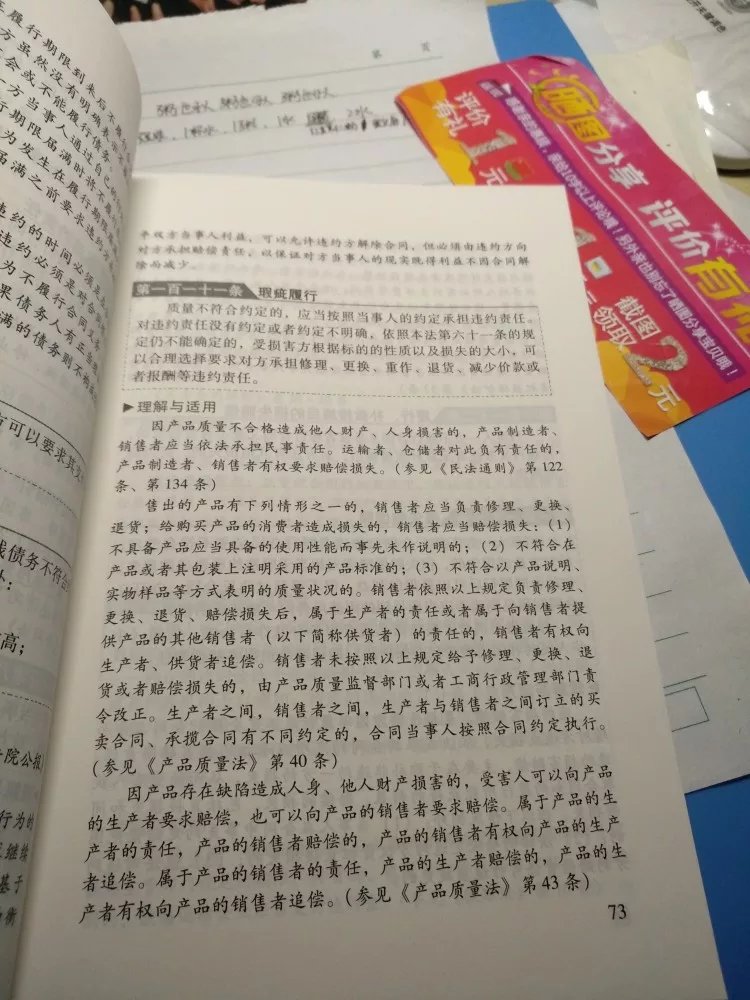 履行期限到来后不履行
方虽然没有明确表示
会或不能履行债务
方当事人通过自己的行
行期限届满时将不履
为发生在履行期限
届满之前要求违约方
违约的时间必须是
违约必须是对合同
为不履行合同义务
果债务人有正当
满的债务则不构成
可以要求其
债务不符合
高；
院公报
行为的
继续
基于
衡
第 页
评价
有礼
1元
晒图分享 评价有礼
截图
领取
2元
平双方当事人利益，可以允许违约方解除合同，但必须由违约方向
对方承担赔偿责任，以保证对方当事人的现实既得利益不因合同解
除而减少。
第一百一十一条 瑕疵履行
质量不符合约定的，应当按照当事人的约定承担违约责任。
对违约责任没有约定或者约定不明确，依照本法第六十一条的规
定仍不能确定的，受损害方根据标的的性质以及损失的大小，可
以合理选择要求对方承担修理、更换、重作、退货、减少价款或
者报酬等违约责任。
▶理解与适用
因产品质量不合格造成他人财产、人身损害的，产品制造者、
销售者应当依法承担民事责任。运输者、仓储者对此负有责任的，
产品制造者、销售者有权要求赔偿损失。（参见《民法通则》第 122
条、第 134 条）
售出的产品有下列情形之一的，销售者应当负责修理、更换、
退货；给购买产品的消费者造成损失的，销售者应当赔偿损失：（1）
不具备产品应当具备的使用性能而事先未作说明的；（2）不符合在
产品或者其包装上注明采用的产品标准的；（3）不符合以产品说明、
实物样品等方式表明的质量状况的。销售者依照以上规定负责修理、
更换、退货、赔偿损失后，属于生产者的责任或者属于向销售者提
供产品的其他销售者（以下简称供货者）的责任的，销售者有权向
生产者、供货者追偿。销售者未按照以上规定给予修理、更换、退
货或者赔偿损失的，由产品质量监督部门或者工商行政管理部门责
令改正。生产者之间，销售者之间，生产者与销售者之间订立的买
卖合同、承揽合同有不同约定的，合同当事人按照合同约定执行。
（参见《产品质量法》第 40 条）
因产品存在缺陷造成人身、他人财产损害的，受害人可以向产品
的生产者要求赔偿，也可以向产品的销售者要求赔偿。属于产品的生
产者的责任，产品的销售者赔偿的，产品的销售者有权向产品的生产
者追偿。属于产品的销售者的责任，产品的生产者赔偿的，产品的生
产者有权向产品的销售者追偿。（参见《产品质量法》第 43 条）
73